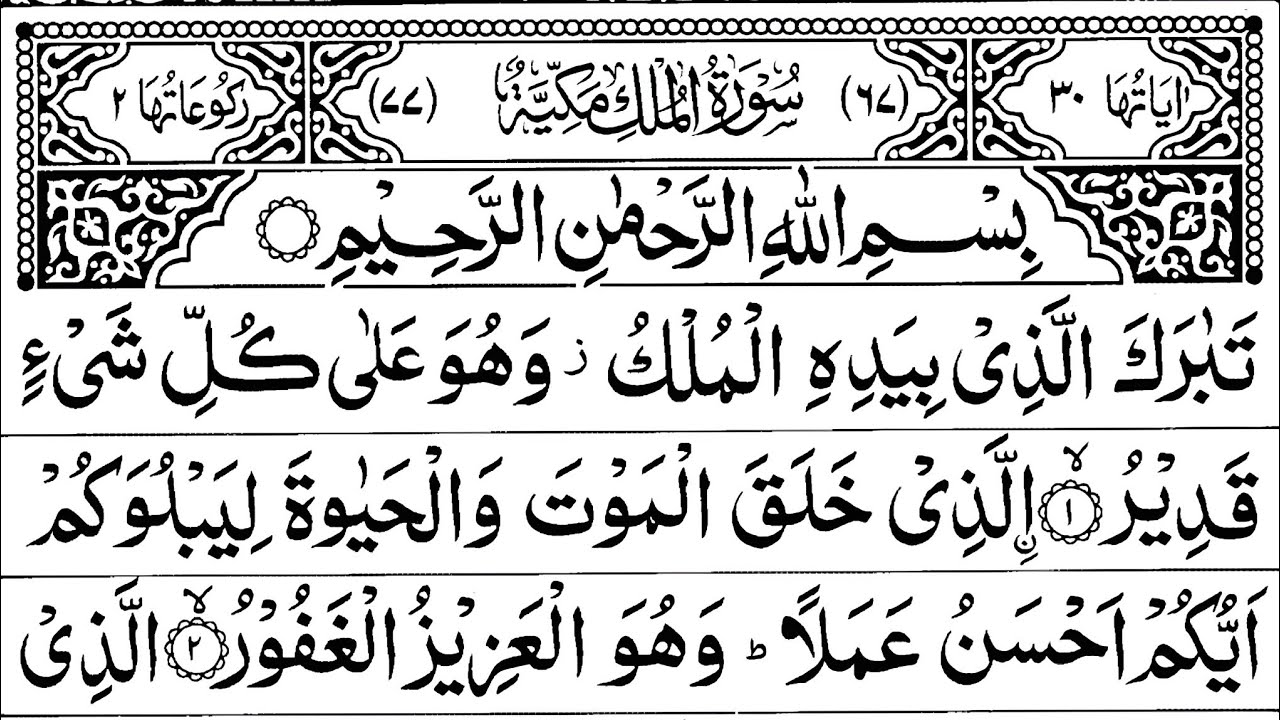 اٰيَاتُهَا ٣٠ (٦٧) سُوْرَةُ الْمُلْكِ مَكِّيَّةٌ (٧٧) رَكُوْعَاتُهَا ٢
بِسْمِ اللّٰهِ الرَّحْمٰنِ الرَّحِيْمِ
تَبٰرَكَ الَّذِىْ بِيَدِهِ الْمُلْكُ ز وَهُوَ عَلٰى كُلِّ شَىْءٍ
قَدِيْرُ ۙ ١ اِۨلَّذِىْ خَلَقَ الْمَوْتَ وَالْحَيٰوةَ لِيَبْلُوَكُمْ
اَيُّكُمْ اَحْسَنُ عَمَلًا ؕ وَهُوَ الْعَزِيْزُ الْغَفُوْرُ ۙ ٢ الَّذِىْ